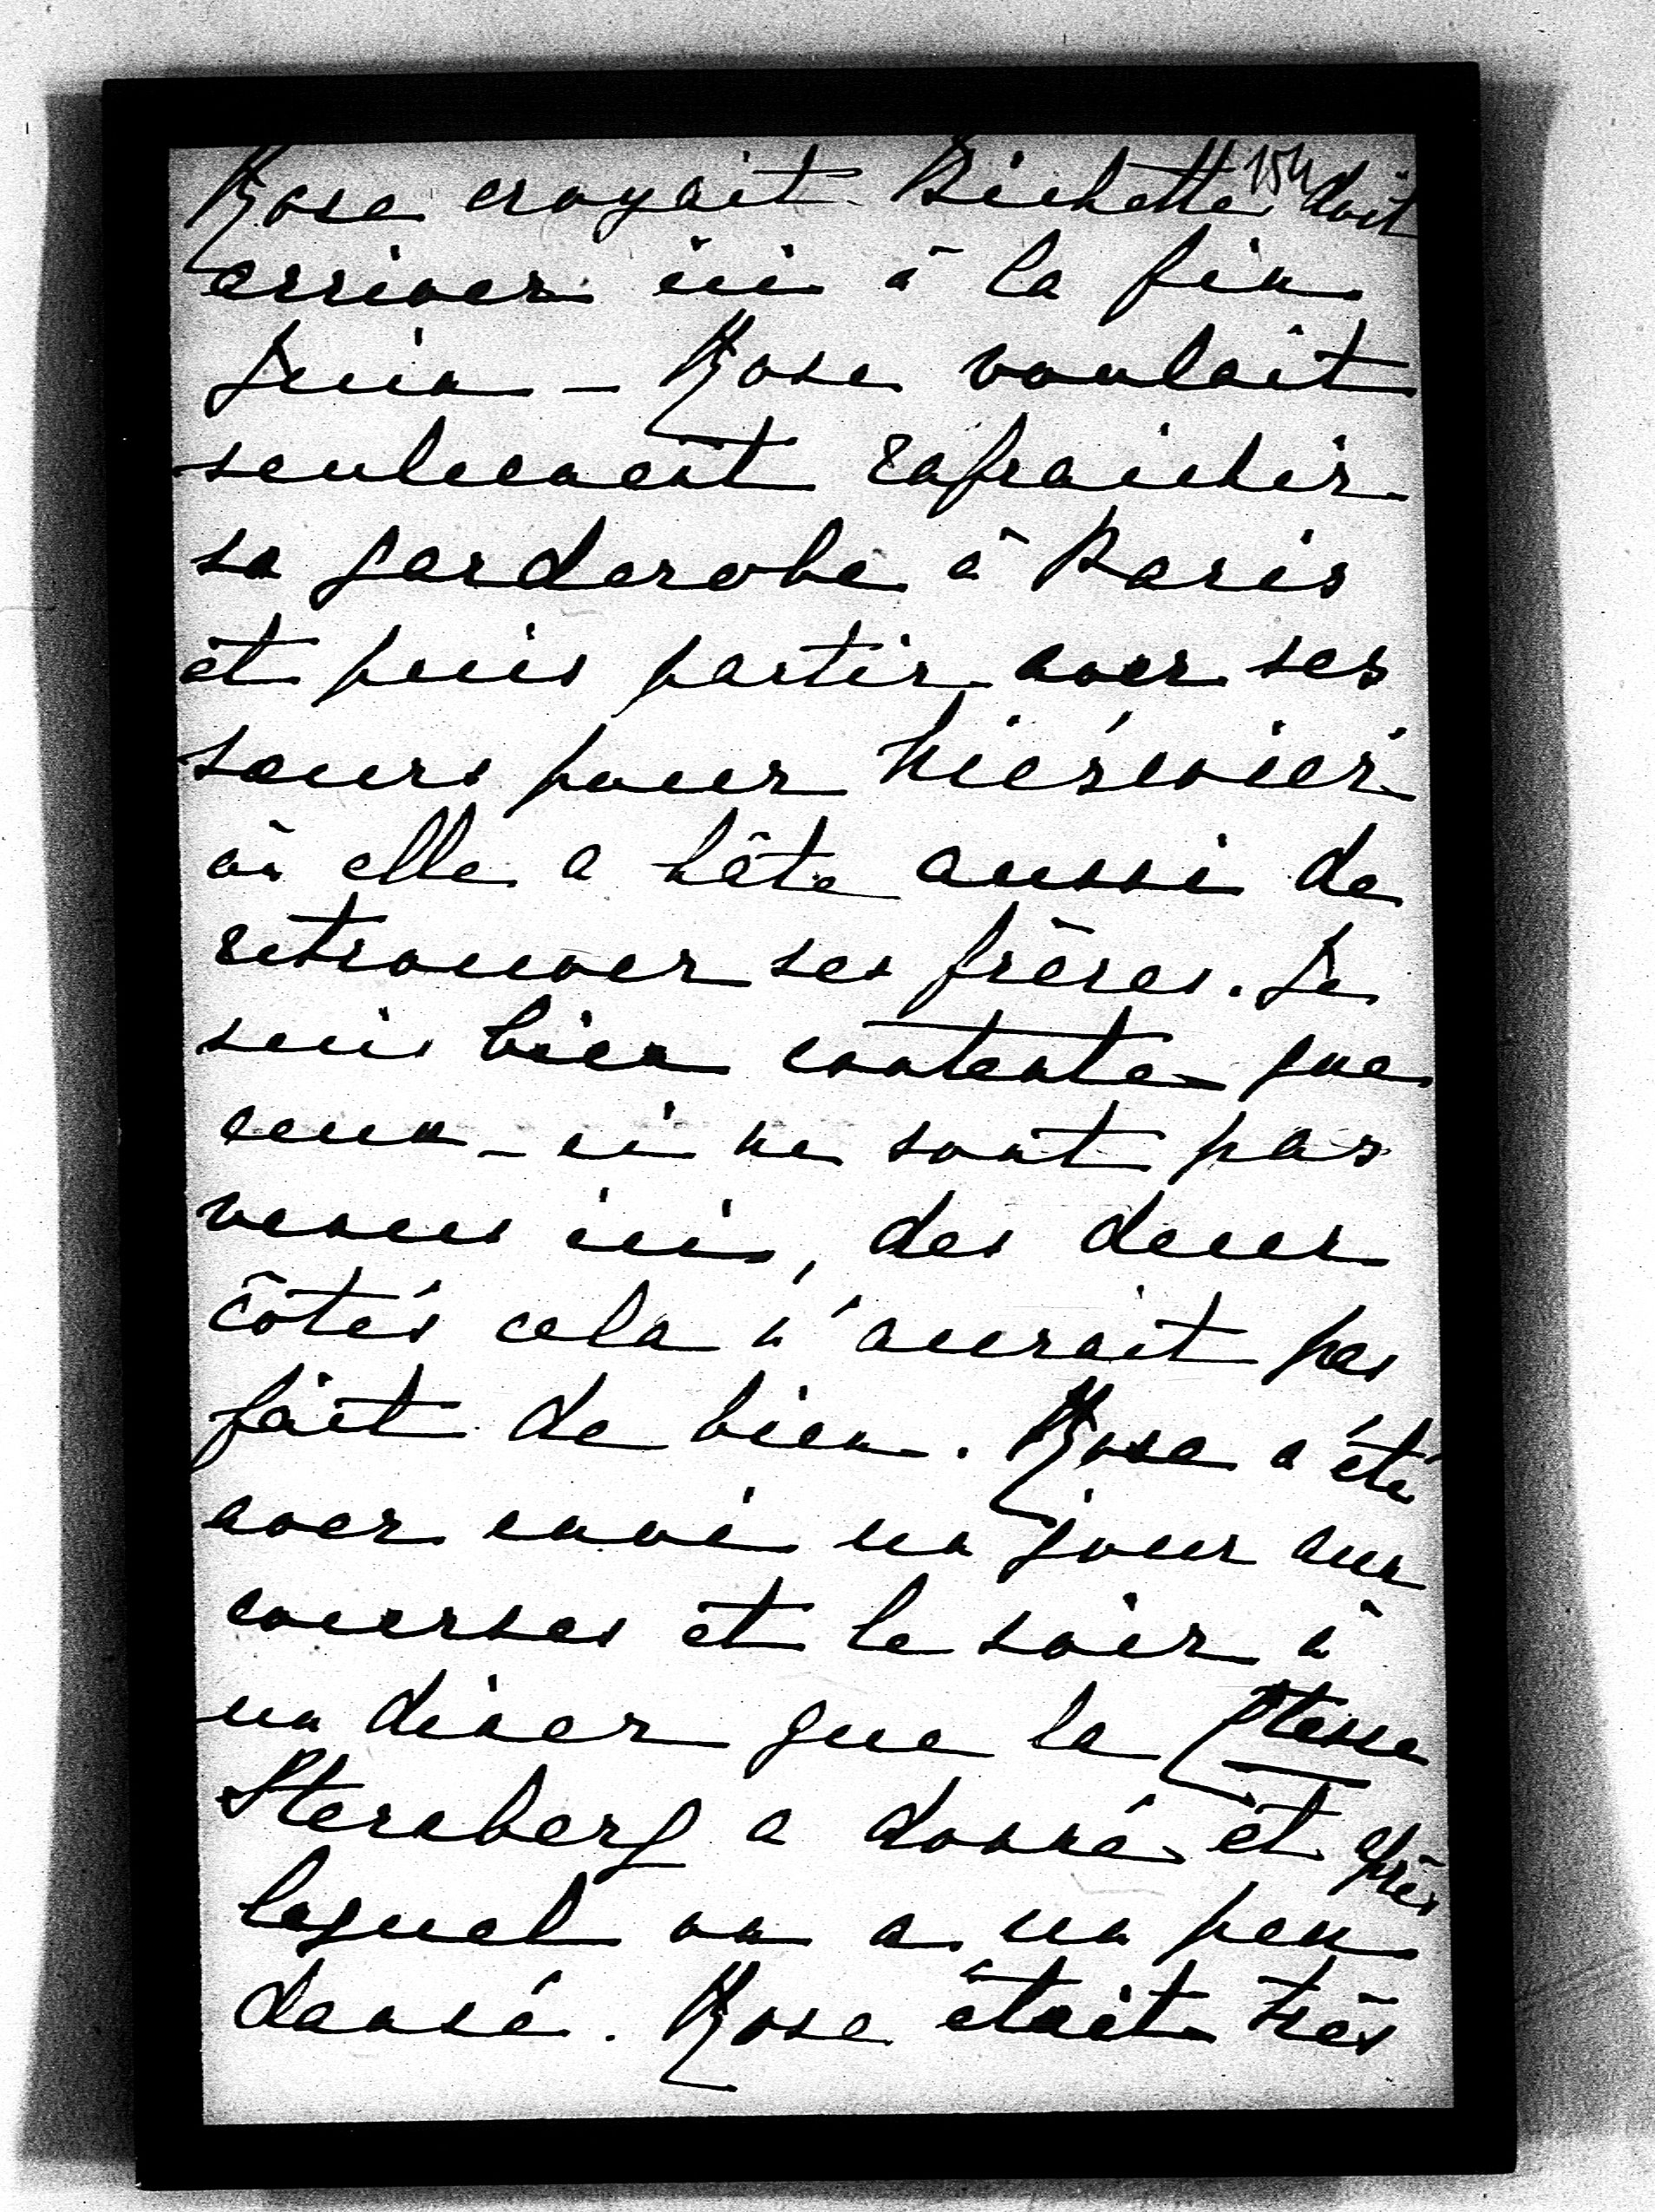 Rose croyait. Bichette doit 154
arriver ici à la fin
Juin – Rose voulait
seulement rafraichir
sa garderobe à Paris
et puis partir avec ses
sœurs pour Niéswież
où elle a hâte aussi de
retrouver ses frères. Je
suis bien contente que
ceux-ci ne sont pas
venus ici, des deux
côtés cela n'aurait pas
fait de bien. Rose a été
avec moi un jour aux
courses et le soir à
un diner que la Ptesse
Sternberg a donné et après
lequel on a un peu
dansé. Rose était très